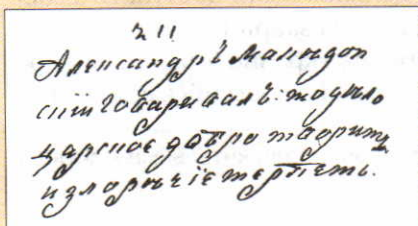 ч 11
Александръ македон
скїи говаривалъ: то дѣло
царское добро творити
и злорѣчїе терпѣть.